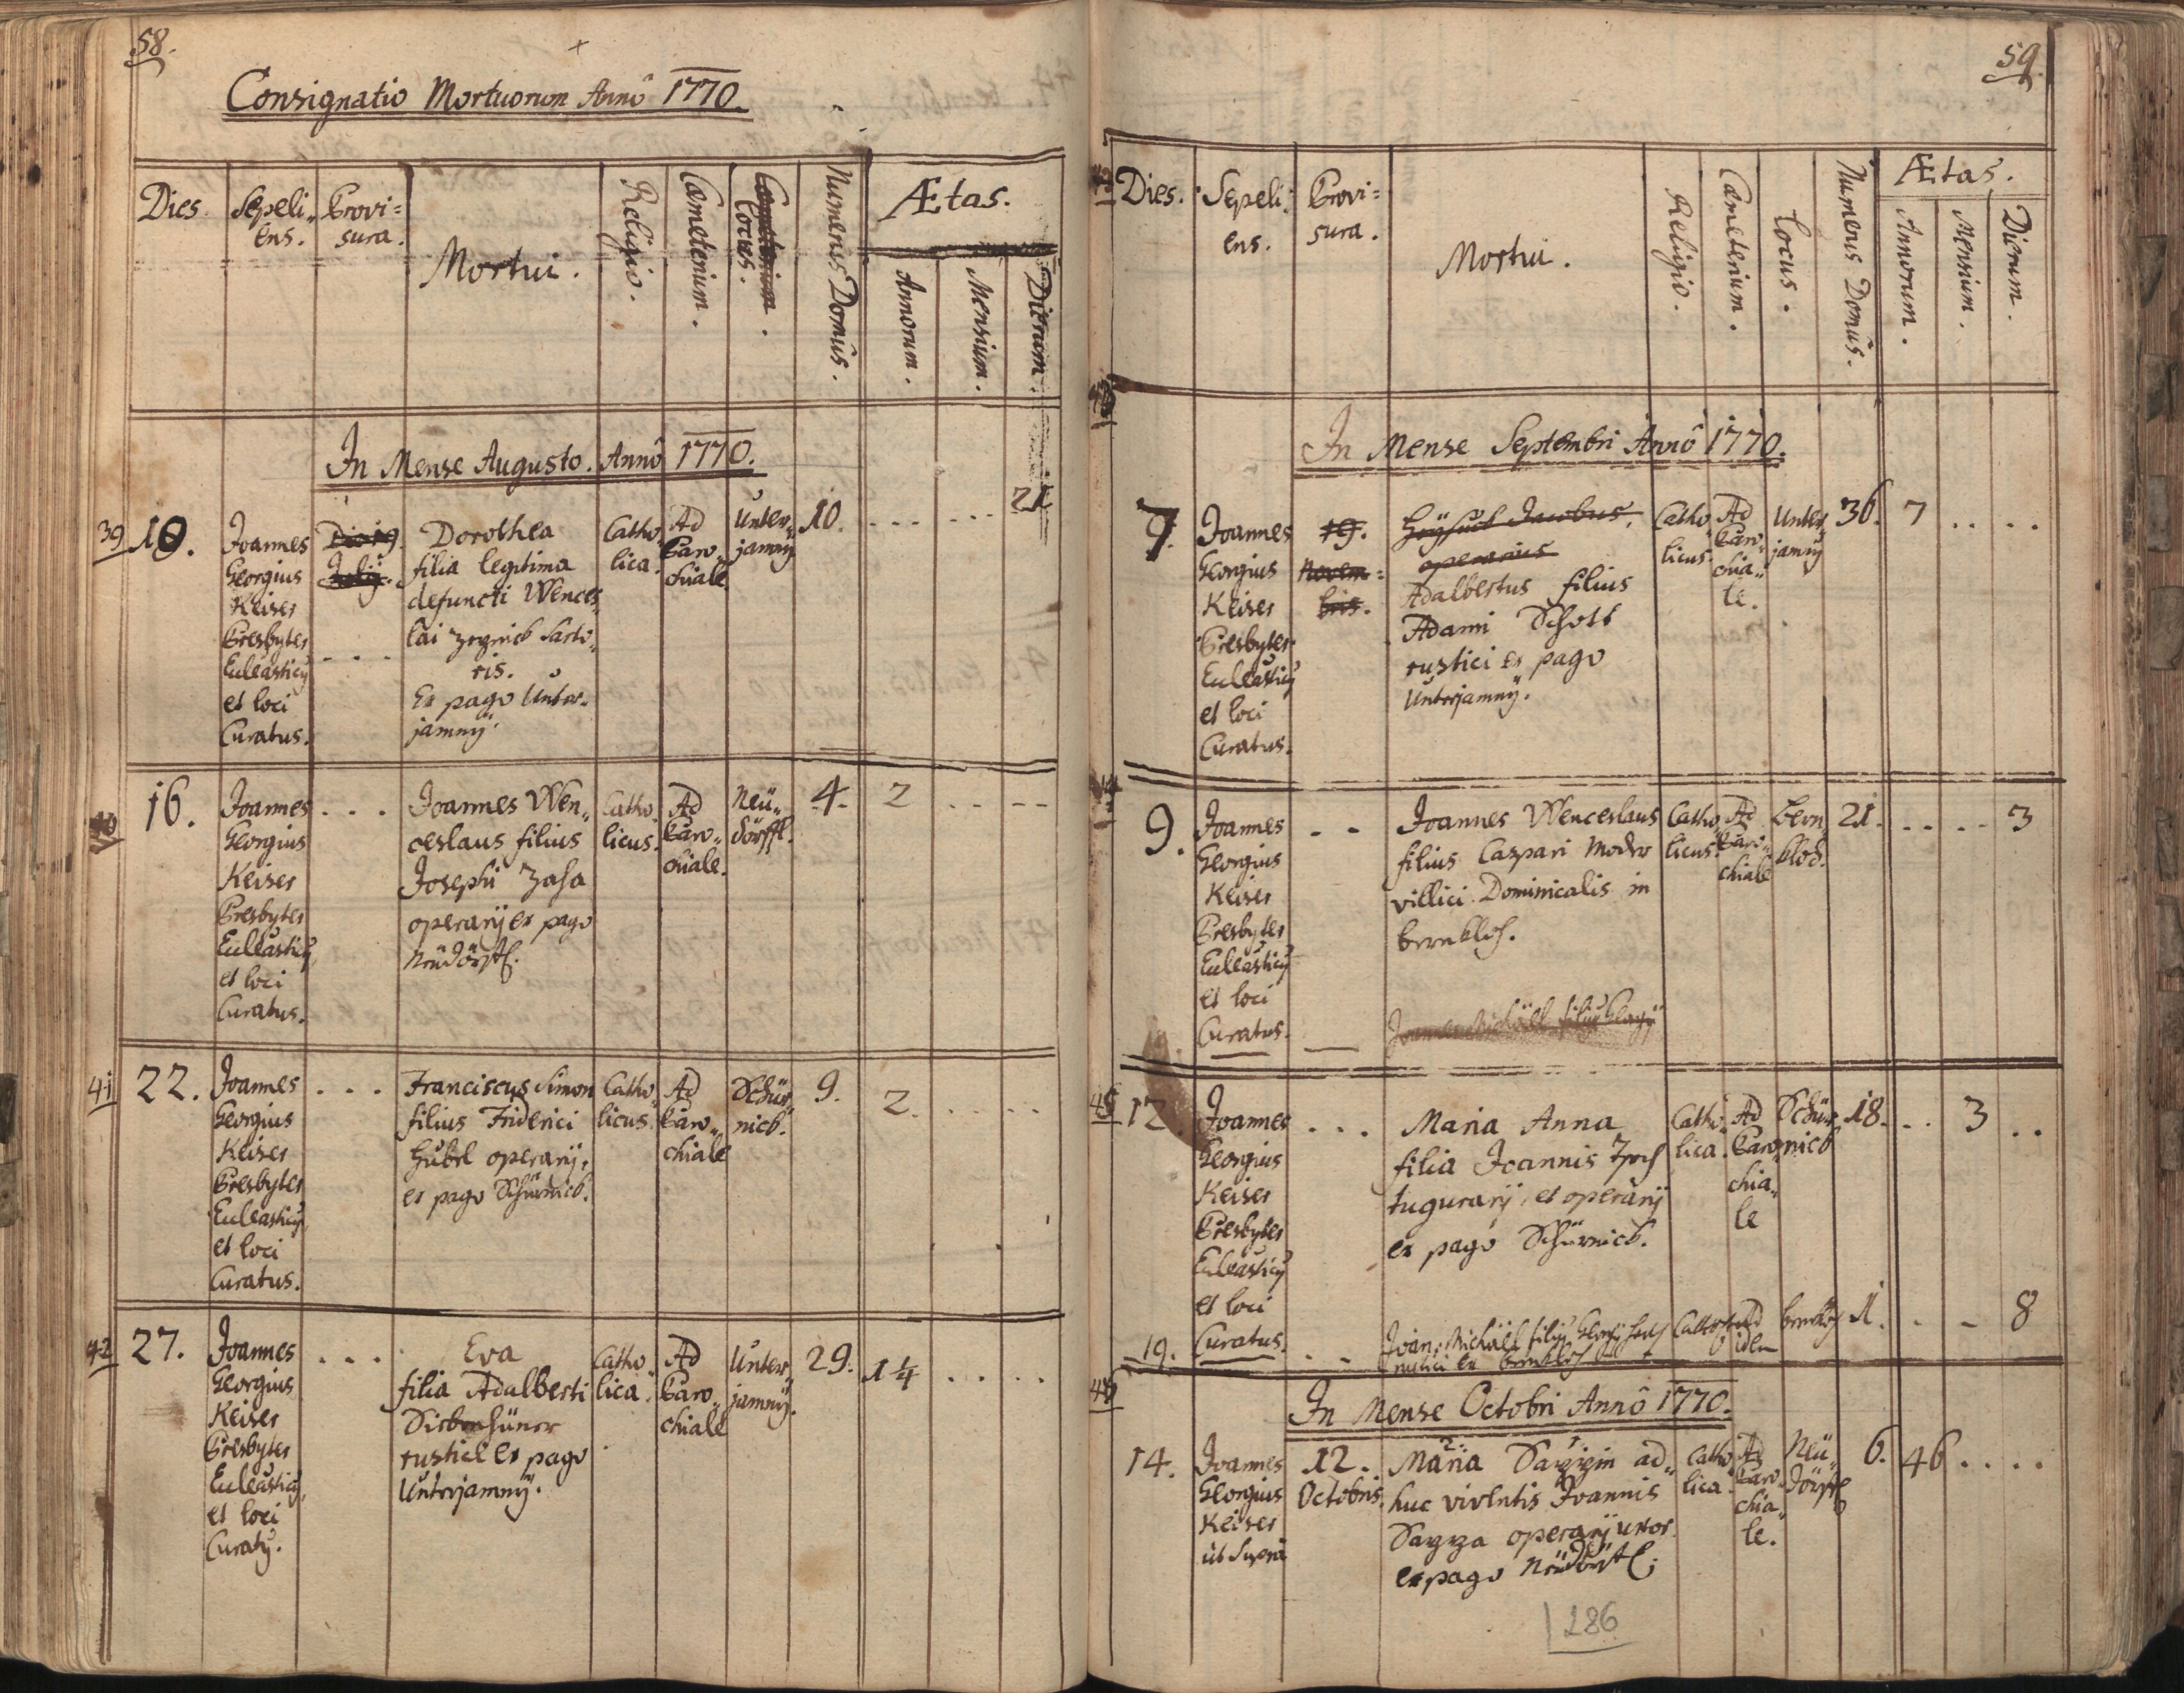 58.
Consignatio Mortuorum Annô 1770.
Dies.
Sepeli„
ens.
Provi=
sura.
Mortui.
Religio.
Cæmeterium.
Locus.
Numerus Domûs.
Ætas.
Annorum.
Mensium.
Dierum.
In Mense Augusto. Annô 1770.
39
10.
Joannes
Georgius
Keiser
Presbyter
et loci
Curatus.
Die 19
Julij.
Dorothea
filia legitima
defuncti Wences„
lai Sarto„
ris.
Ex pago Unter„
jamnÿ.
Catho„
lica.
Ad
Paro„
chiale.
Unter„
jamnÿ
10.
21
40
16.
Joannes
Georgius
Keiser
Presbyter
et loci
Curatus.
Joannes Wen„
ceslaus filius
Josephi Zasa
operarij ex pago
Neüdörfl.
Catho„
licus.
Ad
Paro„
chiale.
Neü„
dörffl.
4.
2
41
22.
Joannes
Georgius
Keiser
Presbyter
et loci
Curatus.
Franciscus Simon
filius Friderici
Hübel operarij,
ex pago Schürnick.
Catho„
licus.
Ad
Paro„
chiale
Schür„
nick.
9.
2.
42
27.
Joannes
Georgius
Keiser
Presbyter
et loci
Curaty.
Eva
filia Adalberti
Siebenhüner
rustici ex pago
Unterjamnÿ.
Catho„
lica.
Ad
Paro„
chiale
Unter„
jamnÿ.
29.
1¼
59.
Dies.
Sepeli„
ens.
Provi=
sura.
Mortui.
Religio.
Cæmeterium.
Locus.
Numerus Domûs.
Ætas.
Annorum.
Mensium.
Dierum.
In Mense Septembri Annô 1770.
7.
Joannes
Georgius
Keiser
Presbyter
et loci
Curatus.
19.
Novem=
bris.
Jacobus,
operarius
Adalbertus filius
Adami Schott
rustici ex pago
Unterjamnÿ.
Catho„
licus.
Ad
Paro„
chia„
le.
Unter„
jamnÿ
36.
7
9.
Joannes
Georgius
Keiser
Presbyter
et loci
Curatus.
Joannes Wenceslaus
filius Caspari
villici Dominicalis in
Catho„
licus.
Ad
Paro„
chiale
21.
3
45
12.
Joannes
Georgius
Keiser
Presbyter
et loci
Curatus.
Maria Anna
filia Joannis
tugurarij, et operarij
ex pago Schürnick.
Catho„
lica.
Ad
Paro„
chia„
le
Schür„
nick
18.
3
19.
Joan: Michäel
1.
8
In Mense Octobri Annô 1770.
14.
Joannes
Georgius
Keiser
ut Supra
12.
Octobris.
Maria ad„
huc viventis Joannis
operarij uxor.
ex pago Neüdörfl.
Catho„
lica.
Ad
Paro„
chia„
le.
Neü„
dörffl
6.
46
286